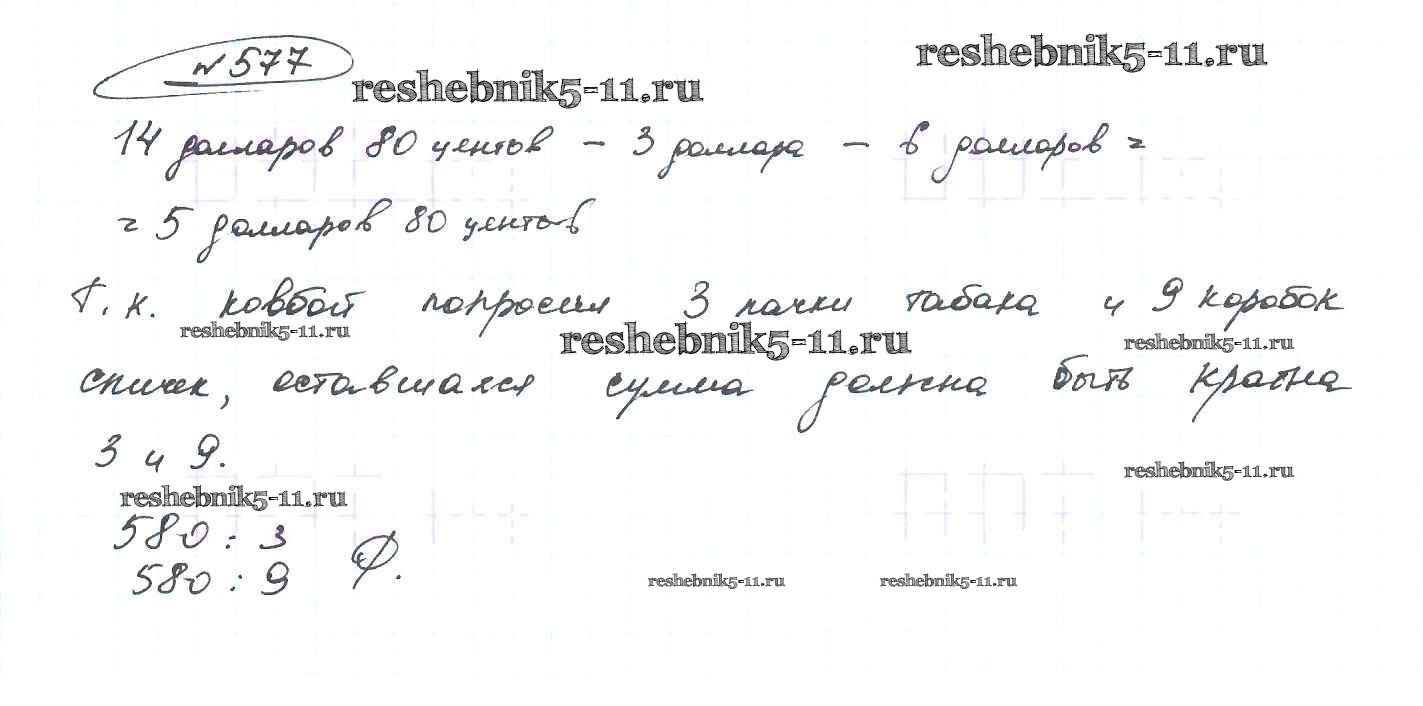 № 577
reshebnik5-11.ru
reshebnik5-11.ru
14 долларов 80 центов - 3 доллара - 6 долларов =
= 5 долларов 80 центов
Т.к. ковбой попросил 3 пачки табака и 9 коробок
reshebnik5-11.ru
reshebnik5-11.ru
reshebnik5-11.ru
спичек, оставшаяся сумма должна быть кратна
3 и 9.
reshebnik5-11.ru
reshebnik5-11.ru
580 : 3
580 : 9
reshebnik5-11.ru
reshebnik5-11.ru